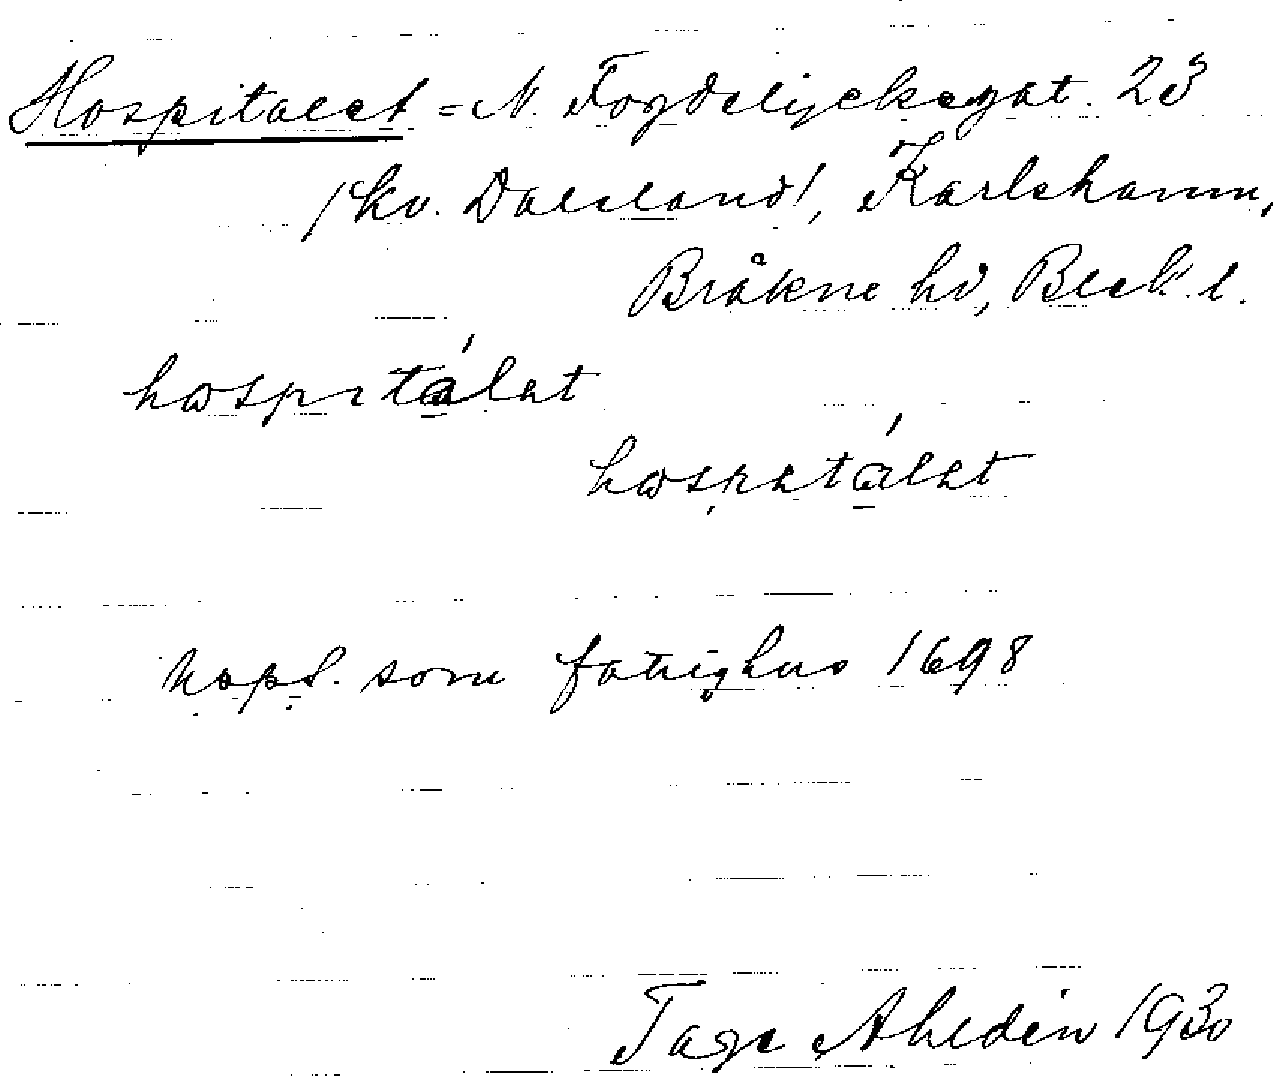 Hospitalet = N. Fogdelyckegat. 23
/kv. Dalsland/, Karlshamn,
Bråkne hd, Blek. l.
hospitálet
hospetálet
uppf. som fattighus 1698
Tage Ahldén 1930